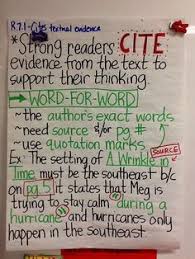 R.7.1 - Cite textual evidence
*Strong readers CITE
evidence from the text to
support their thinking.
→WORD-FOR-WORD
~ the author's exact words
~ need source &/or pg #
~ use quotation marks
SOURCE
Ex: The setting of A Wrinkle in
Time must be the southeast b/c
on pg. 5 it states that Meg is
trying to stay calm "during a
hurricane" and hurricanes only
happen in the southeast